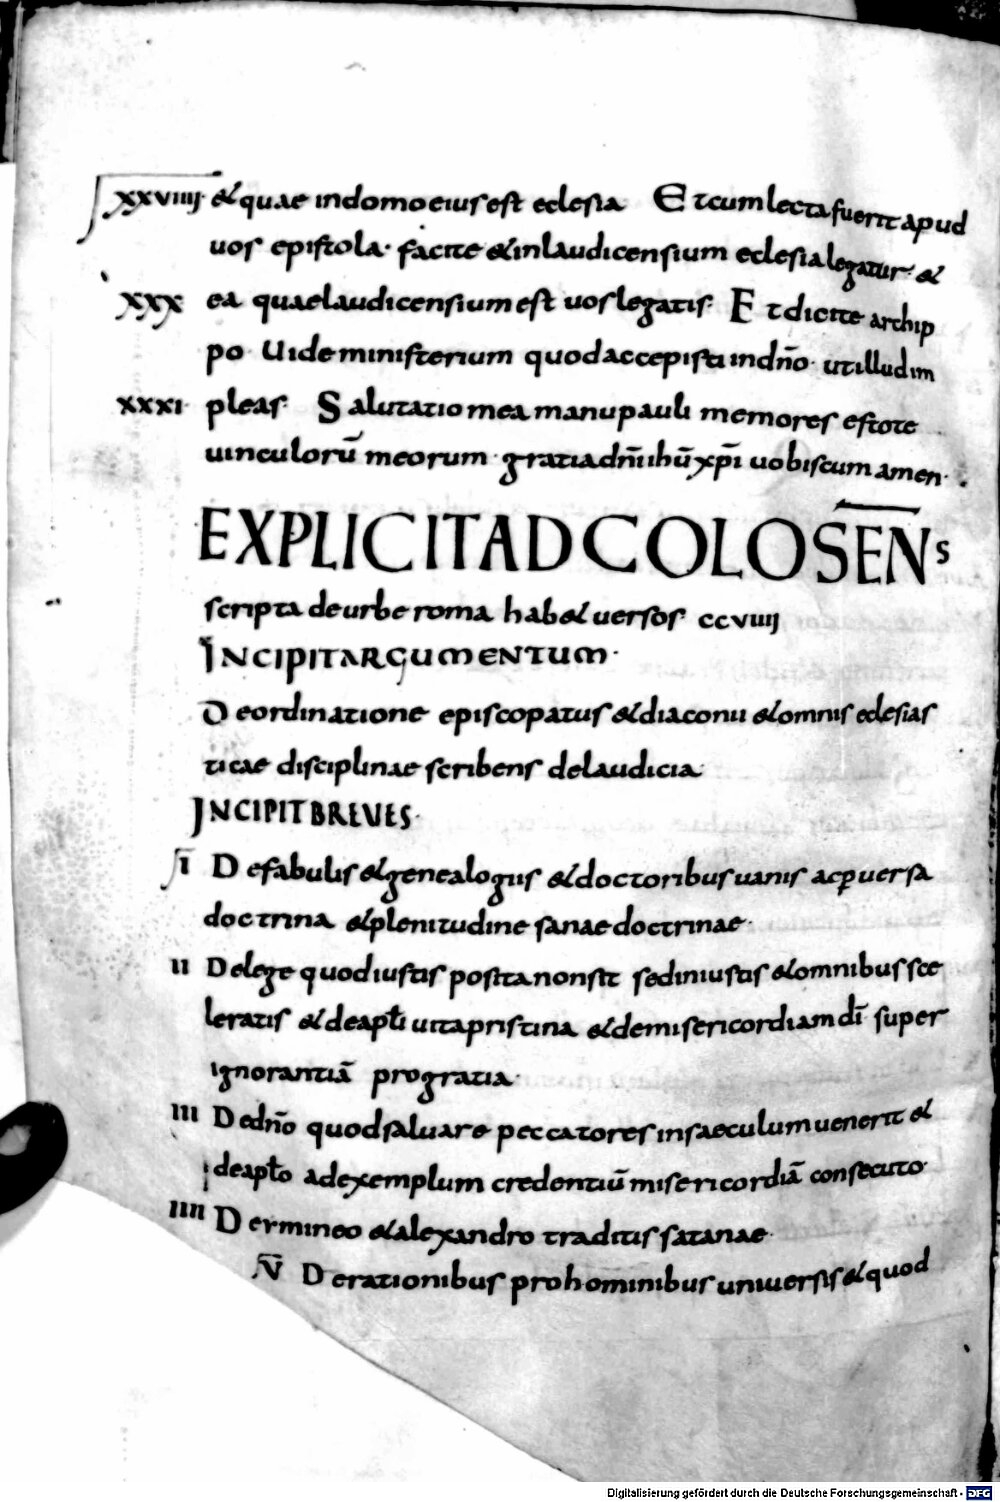 xxviiij et quae indomoeiusest eclesia Etcumlectafuerit apud
uos epistola· facite etinlaudicensium eclesialegatur· et
xxx ea quaelaudicensiumest uoslegatis· Etdicite archip
po· Uideministerium quodaccepisti indño· utilludim
xxxi· pleas· Salutatiomeamanupauli memores estote
uinculorū meorum· gratiadñiihūxp̄i uobiscumamen·
EXPLICITADCOLOSEN̄s
scripta deurbe roma habet uersos ccviiij
INCIPITARGUMENTUM·
Deordinatione episcopatus etdiaconii etomnis eclesias
ticae disciplinae scribens delaudicia·
INCIPITBREUES·
ī Defabulis etgenealogiis etdoctoribusuanis acp̱uersa
doctrina etplenitudine sanaedoctrinae·
ii Delege quodiustis positanonsit sediniustis etomnibussce
leratis etdeaptł̄i uitapristina etdemisericordiamdī super
ignorantiā progratia·
iii Dedño quodsaluare peccatores insaeculumuenerit et
deaptł̄o adexemplum credentiū misericordiā consecuto·
iiii Dermineo etalexandro traditis satanae·
v̄ Derationibus prohominibus uniuersis etquod
Digitalisierung gefördert durch die Deutsche Forschungsgemeinschaft - DFG